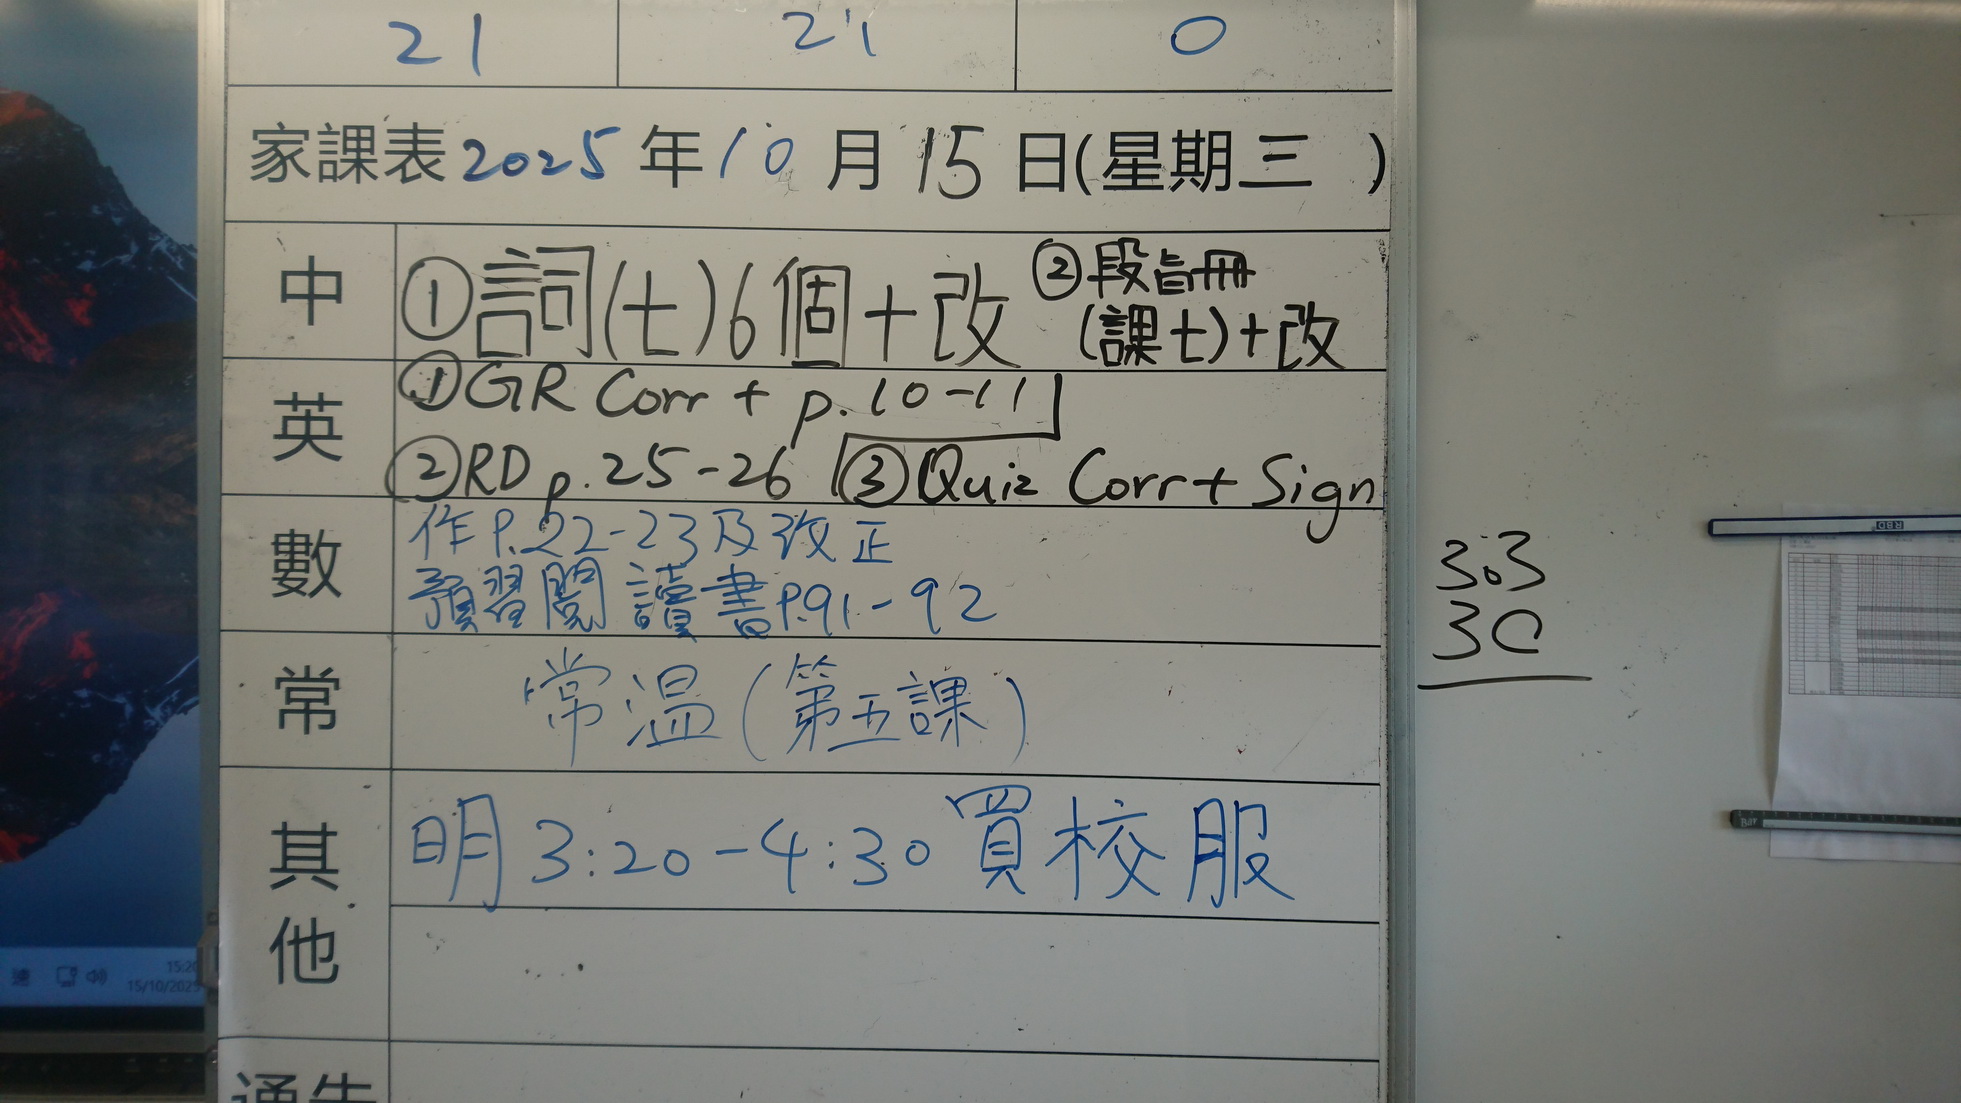 21 21 0
家課表 2025 年 10 月 15 日(星期三 )
中
①詞(七)6個+改 ②段旨冊
(課七)+改
英
①GR Corr + p.10-11
②RD p.25-26 ③Quiz Corr + Sign
數
作P.22-23及改正
預習閱讀書P.91-92
常
常溫(第五課)
其他
明3:20-4:30買校服
通告
3.3
30
15/10/2025